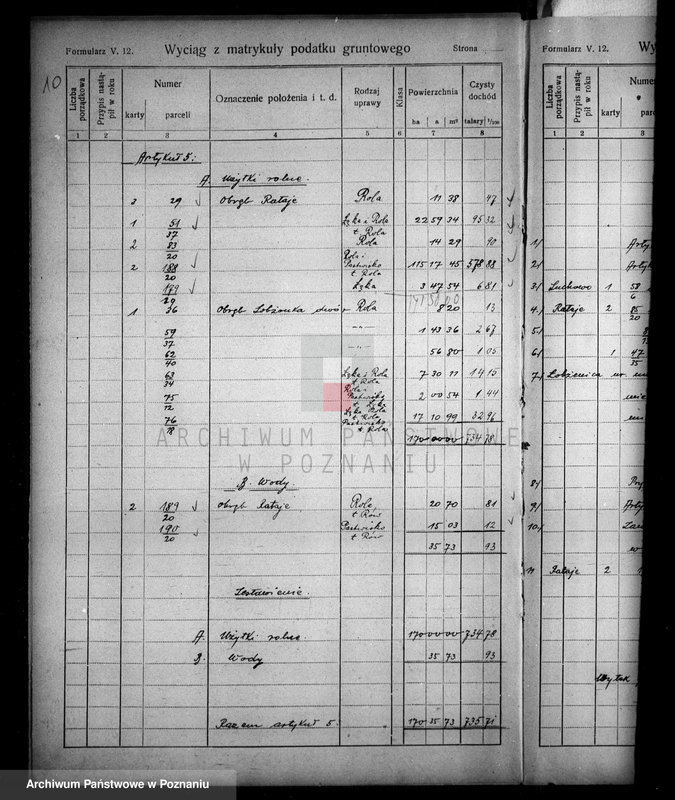 10
Formularz V. 12. Wyciąg z matrykuły podatku gruntowego Strona
Liczba porządkowa Przypis nastąpił w roku Numer Oznaczenie położenia i t. d. Rodzaj uprawy Klasa Powierzchnia Czysty dochód
karty parceli ha a m² talary 1/100
1 2 3 4 5 6 7 8
Artykuł 5:
A. Użytki rolne.
3 29 Obręb Rataje Rola 11 38 47
1 51/37 Łąka i Rola t. Rola 22 59 34 95 32
2 83/20 Rola 14 29 90
2 188/20 Rola. Pastwisko t. Rola 115 17 45 578 88
179/29 Łąka 3 47 54 6 81
141 50 00
1 36 Obręb Łobżonka dwór Rola 8 20 13
59/37 -"- 1 43 36 2 67
62/40 -"- 56 80 1 05
63/34 Łąka i Rola t. Rola 7 30 11 14 15
75/12 Rola. Pastwisko t. Łąka 2 00 54 1 44
76/78 Łąka Rola t. Rola Pastwisko t. Rola 17 10 99 32 96
170 00 00 734 78
B. Wody
2 189/20 Obręb Rataje Rola t. Rów 20 70 81
190/20 Pastwisko t. Rów 15 03 12
35 73 93
Zestawienie.
A. Użytki rolne. 170 00 00 734 78
B. Wody 35 73 93
Razem artykuł 5. 170 35 73 735 71
Formularz V. 12. Wy
Liczba porządkowa Przypis nastąpił w roku Numer
karty parc
1 2 3
1/ Arty
2/ Artyk
3/ Luchowo 1 58/6
4/ Rataje 2 85/20
5/
6/ 1 47/35
7/ Łobżenica
8/
9/ Arty
10/
11 Rataje 2
ARCHIWUM PAŃSTWOWE
W POZNANIU
Archiwum Państwowe w Poznaniu